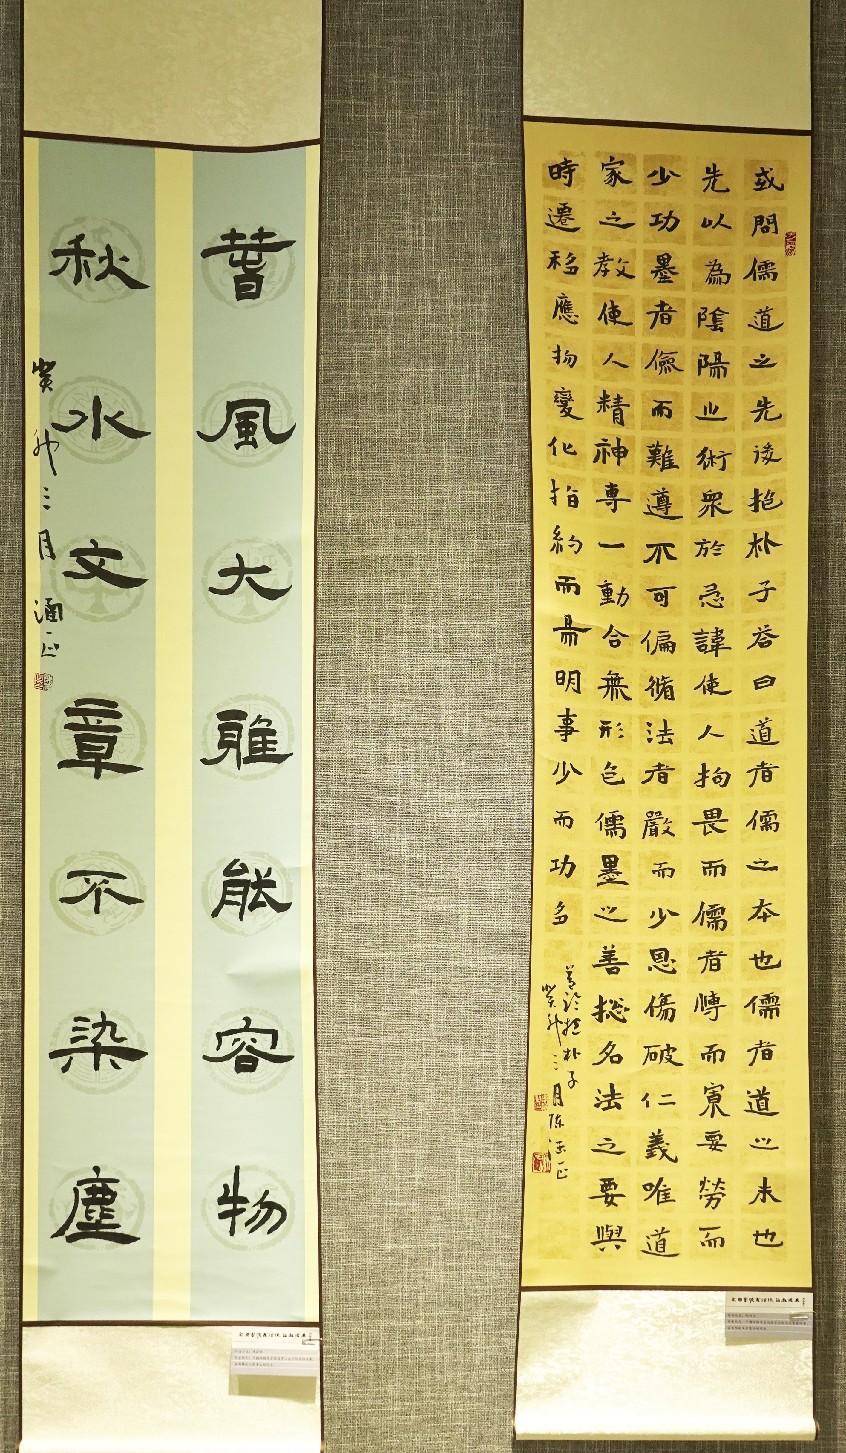 或問儒道之先後抱朴子荅曰道者儒之本也儒者道之末也
先以為陰陽之術衆於忌諱使人拘畏而儒者博而寡要勞而
少功墨者儉而難遵不可偏循法者嚴而少恩傷破仁義唯道
家之教使人精神專一動合無形包儒墨之善総名法之要與
時遷移應物變化指約而易明事少而功多
抱朴子
癸卯三月陈
春風大雅能容物
秋水文章不染塵
癸卯三月涵